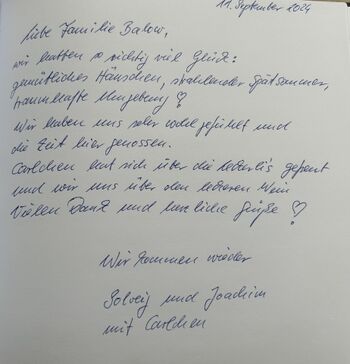 11. September 2024
Liebe Familie Balow,
wir hatten so richtig viel Glück:
gemütliches Häuschen, strahlender Spätsommer,
traumhafte Umgebung ♡
Wir haben uns sehr wohl gefühlt und
die Zeit hier genossen.
Carlchen hat sich über die Leckerli's gefreut
und wir uns über den leckeren Wein
Vielen Dank und herzliche Grüße ♡
Wir kommen wieder
Solveig und Joachim
mit Carlchen